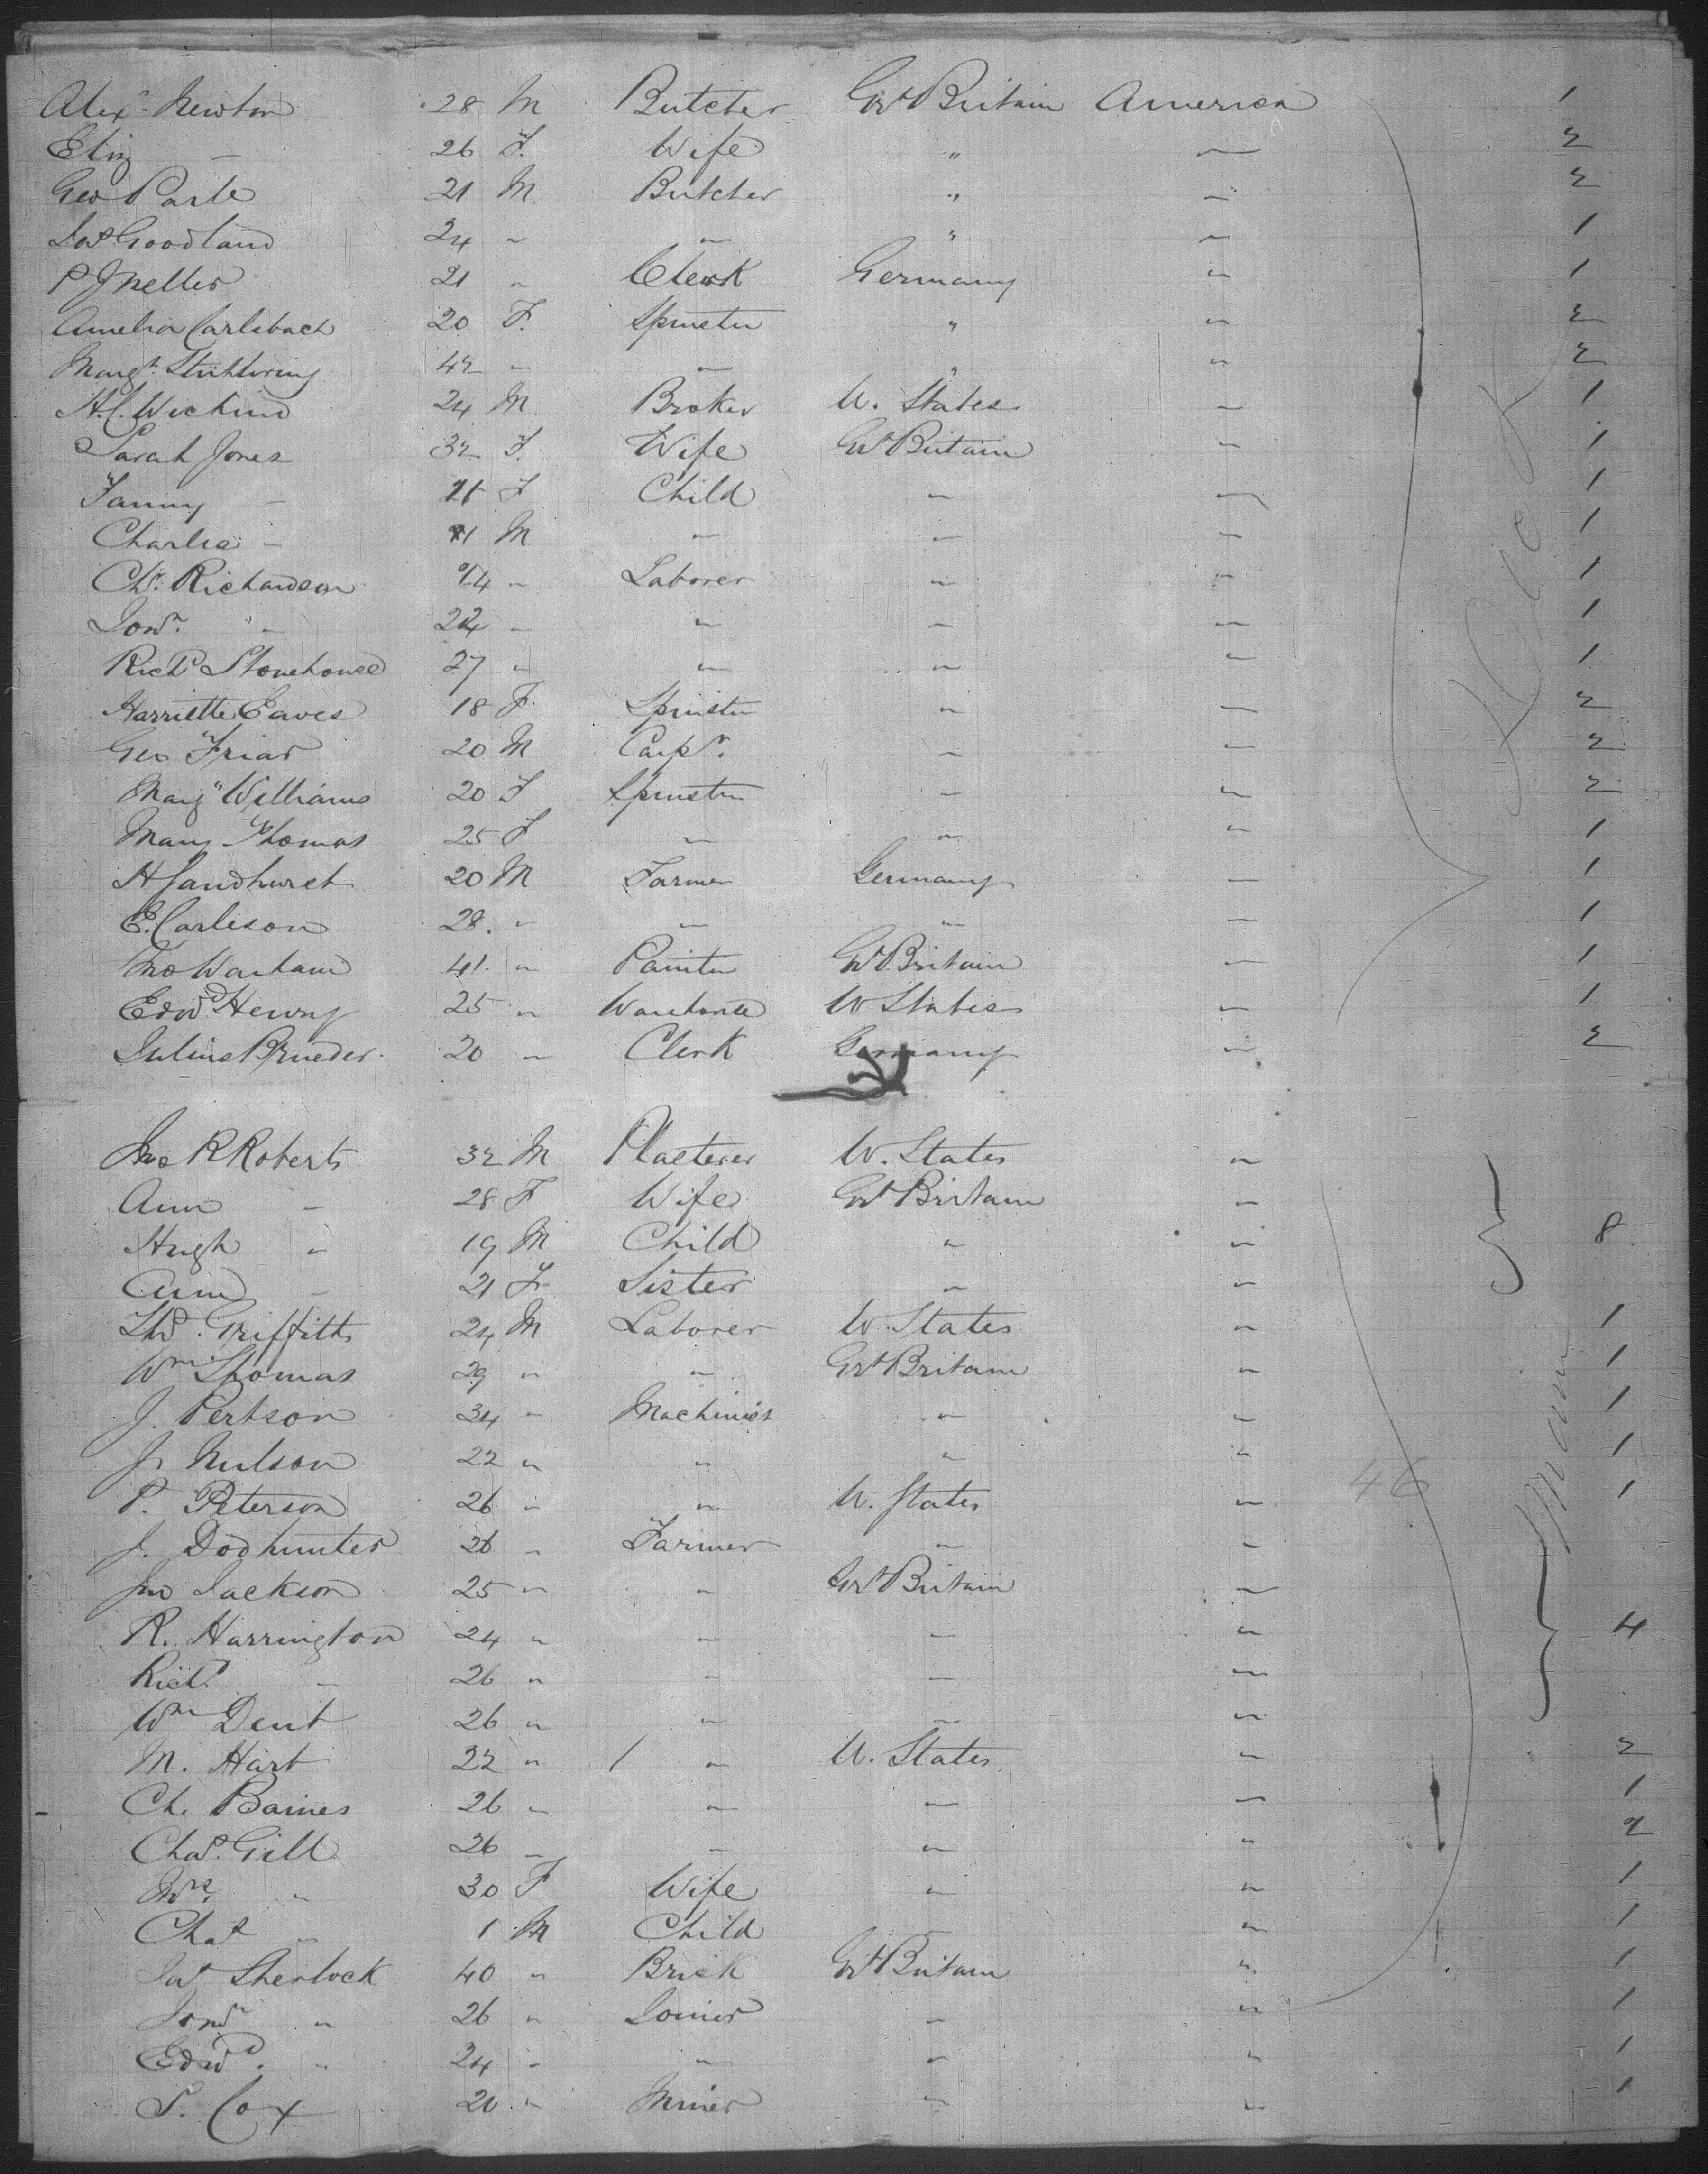 Alexr Newton 28 M Butcher Grt Britain America 1
Eliz — 26 F. Wife " — 2
Geo Parle 21 M. Butcher " — 2
Jas Goodland 24 " " " — 1
P J Meller 21 " Clerk Germany " 1
Amelia Carlsbach 20 F. Spinster " " 2
Margt 42 " — " " 2
H.C. Wickind 24 M. Broker U. States — 1
Sarah Jones 32 F. Wife Grt Britain " 1
Fanny — F Child " — 1
Charles — M — — — 1
Chs. Richardson " Laborer " " 1
Jonn. " 24 — " — — 1
Richd Stonehouse 27 " " " — 1
Harriette Eaves 18 F. Spinster " — 2
Geo Friar 20 M Carpr. — — 2
Margt Williams 20 F Spinster — — 2
Mary Thomas 25 F — " " 1
H Sandhurst 20 M Farmer Germany — 1
E. Carlison 28. " — " — 1
Thos Warham 41. " Painter Grt Britain — 1
Edwd Henry 25 " Warehouse U States — 1
Julius Brueder. 20 " Clerk Germany — 2
Jno R Roberts 32 M Plasterer U. States "
Ann — 28 F Wife Grt Britain "
Hugh " 19 M Child " " 8
Ann — 21 F Sister " "
Thos. Griffiths 24 M Laborer U. States " 1
Wm Thomas 29 " " Grt Britain " 1
J. Pertson 34 " Machinist " " 1
J. Nulson 22 " " " " 1
P. Peterson 26 " " U. States " 46 1
J. Dodhunter 26 " Farmer " "
Jno Jackson 25 " " Grt Britain —
R. Harrington 24 " — — " 4
Richd — 26 " — — "
Wm Dent 26 " — — "
M. Hart 22 " / " U. States " 2
Ch. Baines 26 " " — — 1
Chas. Gill 26 — — " " 2
Mrs. " 30 F Wife " " 1
Chas " 1 M Child — " 1
Jas Sherlock 40 " Brick Grt Britain " 1
Jonn " 26 " Joiner — " 1
Edwd. " 24 " — " " 1
S. Cox 20 " Miner " " 1
Main